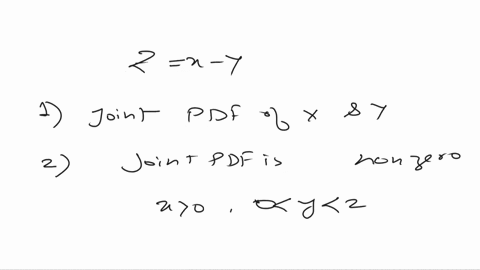 Z = x - y
1) Joint PDF of x & y
2) Joint PDF is nonzero
x>0, 0<y<2